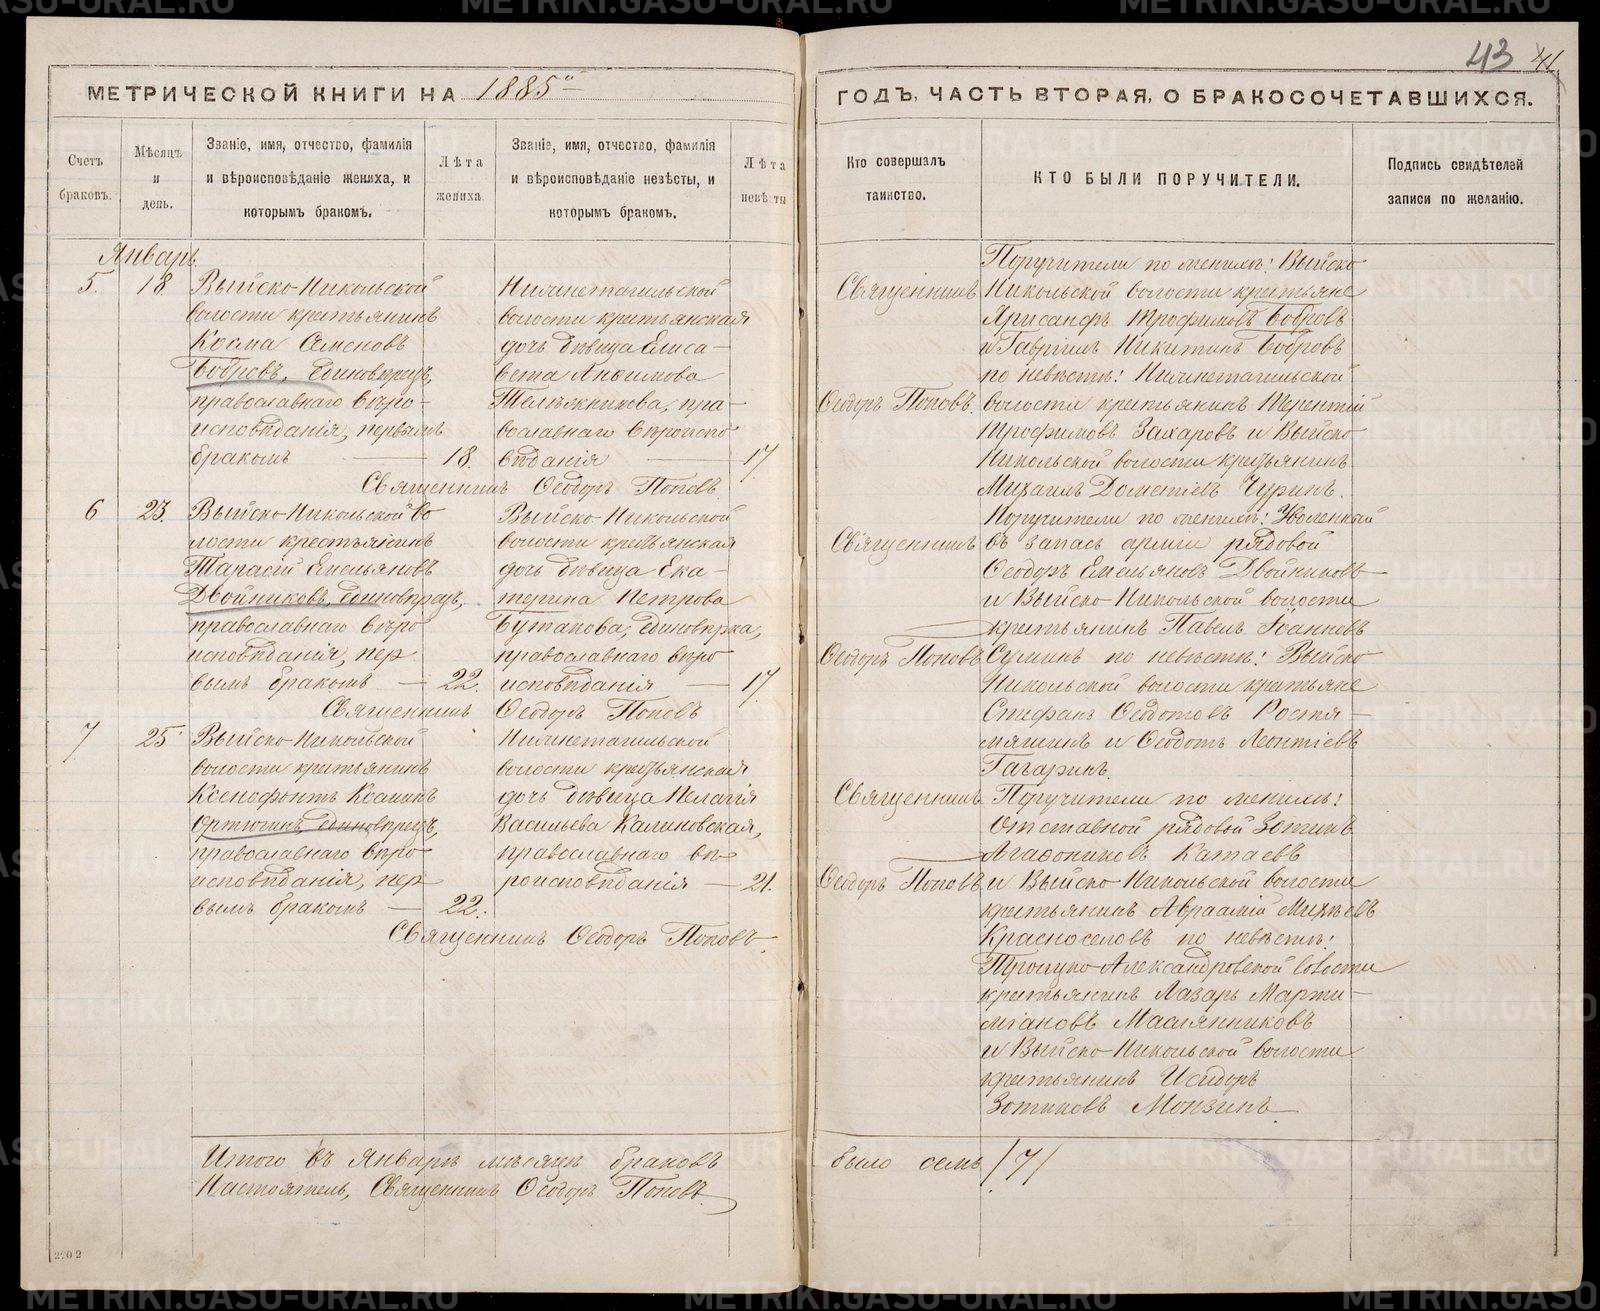 43 41
МЕТРИЧЕСКОЙ КНИГИ НА 1885й
ГОДЪ, ЧАСТЬ ВТОРАЯ, О БРАКОСОЧЕТАВШИХСЯ.
Счетъ браковъ.
Мѣсяцъ и день.
Званіе, имя, отчество, фамилія
и вѣроисповѣданіе жениха, и
которымъ бракомъ.
Лѣта жениха
Званіе, имя, отчество, фамилія
и вѣроисповѣданіе невѣсты, и
которымъ бракомъ.
Лѣта невѣсты
Кто совершалъ
таинство.
КТО БЫЛИ ПОРУЧИТЕЛИ.
Подпись свидѣтелей
записи по желанію.
Январь
5. 18
Выйско-Никольской
волости крестьянинъ
Косма Семеновъ
Бобровъ, единоверецъ,
православнаго вѣро-
исповѣданія, первымъ
бракомъ — 18.
Нижнетагильской
волости крестьянская
дочь девица Елиса-
вета Анкимова
Телѣжникова, пра-
вославнаго вѣроиспо
вѣданія — 17
Священникъ Ѳеодоръ Поповъ.
Священникъ
Ѳеодоръ Поповъ.
Поручители по женихѣ: Выйско
Никольской волости крестьяне
Хрисанфъ Трофимовъ Бобровъ
и Гавріилъ Никитинъ Бобровъ
по невѣстѣ: Нижнетагильской
волости крестьянинъ Терентій
Трофимовъ Захаровъ и Выйско
Никольской волости крестьянинъ
Михаилъ Дометіевъ Чуринъ.
6 23.
Выйско-Никольской во
лости крестьянинъ
Тарасій Емельяновъ
Двойниковъ, единоверецъ,
православнаго вѣро
исповѣданія, пер
вымъ бракомъ — 22.
Выйско-Никольской
волости крестьянская
дочь девица Ека-
терина Петрова
Бутакова, единовѣрка,
православнаго вѣро
исповѣданія — 17.
Священникъ Ѳеодоръ Поповъ
Священникъ
Ѳеодоръ Поповъ
Поручители по женихѣ: Уволенный
въ запасъ арміи рядовой
Ѳеодоръ Емельяновъ Двойниковъ
и Выйско-Никольской волости
крестьянинъ Павелъ Іоанновъ
Суминъ по невѣстѣ: Выйско
Никольской волости крестьяне
Стефанъ Ѳеодотовъ Ростя-
мяшинъ и Ѳеодотъ Леонтіевъ
Гагаринъ.
7. 25
Выйско-Никольской
волости крестьянинъ
Ксенофонтъ Косминъ
Ортюгинъ, единоверецъ,
православнаго вѣро
исповѣданія, пер
вымъ бракомъ — 22.
Нижнетагильской
волости крестьянская
дочь девица Пелагія
Васильева Калиновская,
православнаго вѣ-
роисповѣданія — 21.
Священникъ Ѳеодоръ Поповъ.
Священникъ
Ѳеодоръ Поповъ
Поручители по женихѣ:
Отставной рядовой Зотикъ
Агаѳониковъ Катаевъ
и Выйско-Никольской волости
крестьянинъ Авраамій Михѣевъ
Красноселовъ по невѣстѣ:
Троицко-Александровской волости
крестьянинъ Лазарь Марти-
міановъ Маслянниковъ
и Выйско-Никольской волости
крестьянинъ Исидоръ
Зотиковъ Монзинъ
Итого въ Январѣ мѣсяцѣ браковъ было семь /7/
Настоятель, Священникъ Ѳеодоръ Поповъ
2202
METRIKI.GASO-URAL.RU